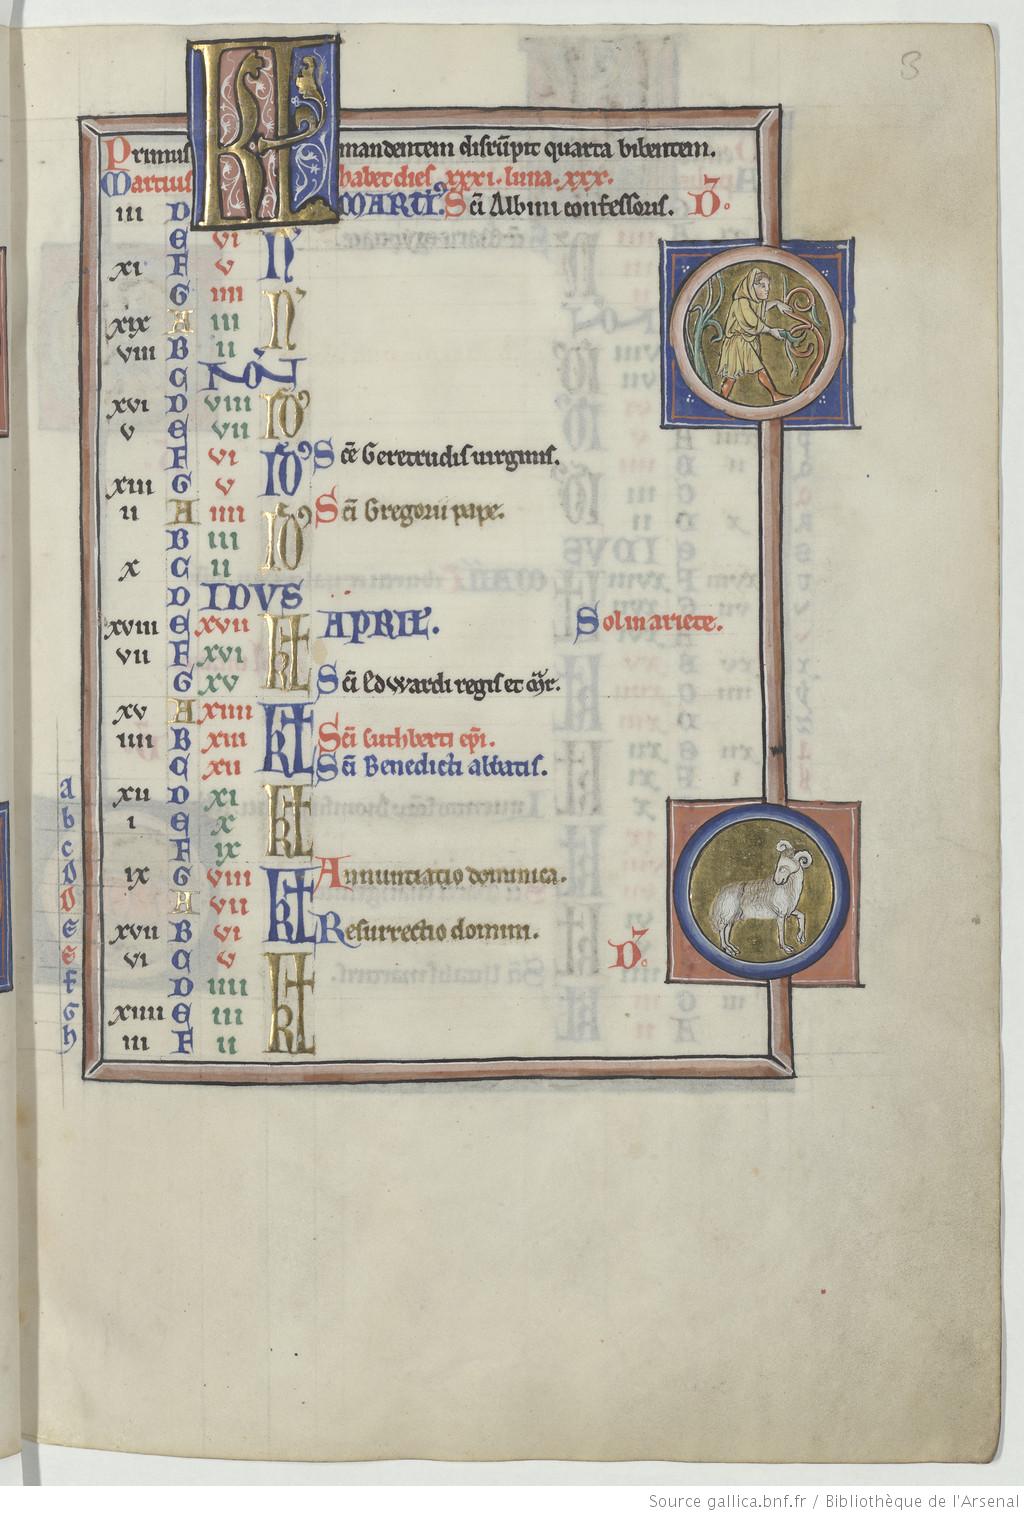 3
Primus KL mandentem disrūpit quarta bibentem.
Martius habet dies .xxxi. luna .xxx.
iii D MARTI⁹. Sc̄i Albini confessoris. D⁊.
E vi N⁹
xi F v
G iiii N⁹
xix A iii
viii B ii
C NŌN
xvi D viii ID⁹
v E vii
F vi ID⁹ Sc̄e Geretrudis virginis.
xiii G v
ii A iiii ID⁹ Sc̄i Gregorii pape.
B iii
x C ii
D IDVS
xviii E xvii KL APRIL. Sol in ariete.
vii F xvi
G xv Sc̄i Edwardi regis et m̄r.
xv A xiiii KL
iiii B xiii Sc̄i cuthberti ep̄i.
C xii Sc̄i Benedicti abbatis.
a
xii D xi KL
b i E x
c F ix
D ix G viii KL Annuntiatio dominica.
D A vii
E xvii B vi Resurrectio domini.
S vi C v KL D⁊.
F D iiii
G xiiii E iii
h iii F ii
Source gallica.bnf.fr / Bibliothèque de l'Arsenal